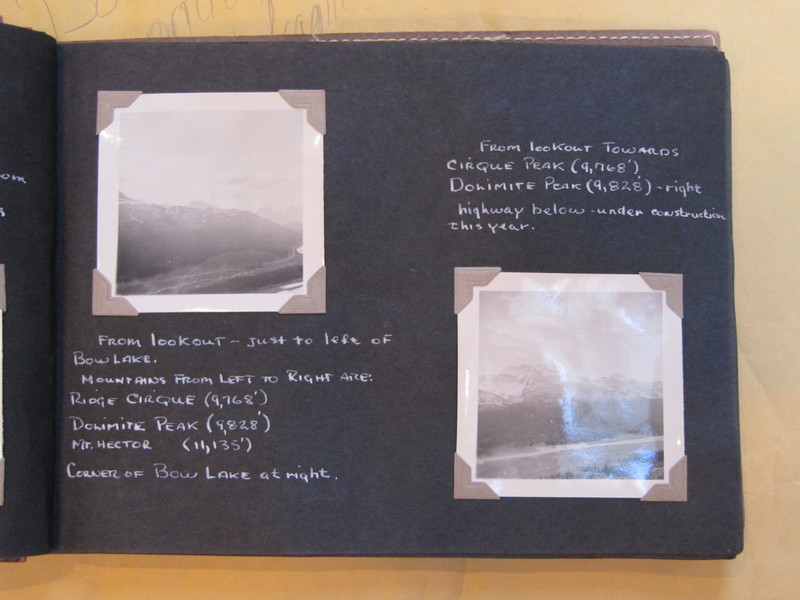 From lookout - just to left of
Bow Lake.
Mountains from left to right are:
Ridge Cirque (9,768')
Dolimite Peak (9,828')
Mt. Hector (11,135')
Corner of Bow Lake at right.
From lookout Towards
Cirque Peak (9,768')
Dolimite Peak (9,828') - right
highway below - under construction
this year.